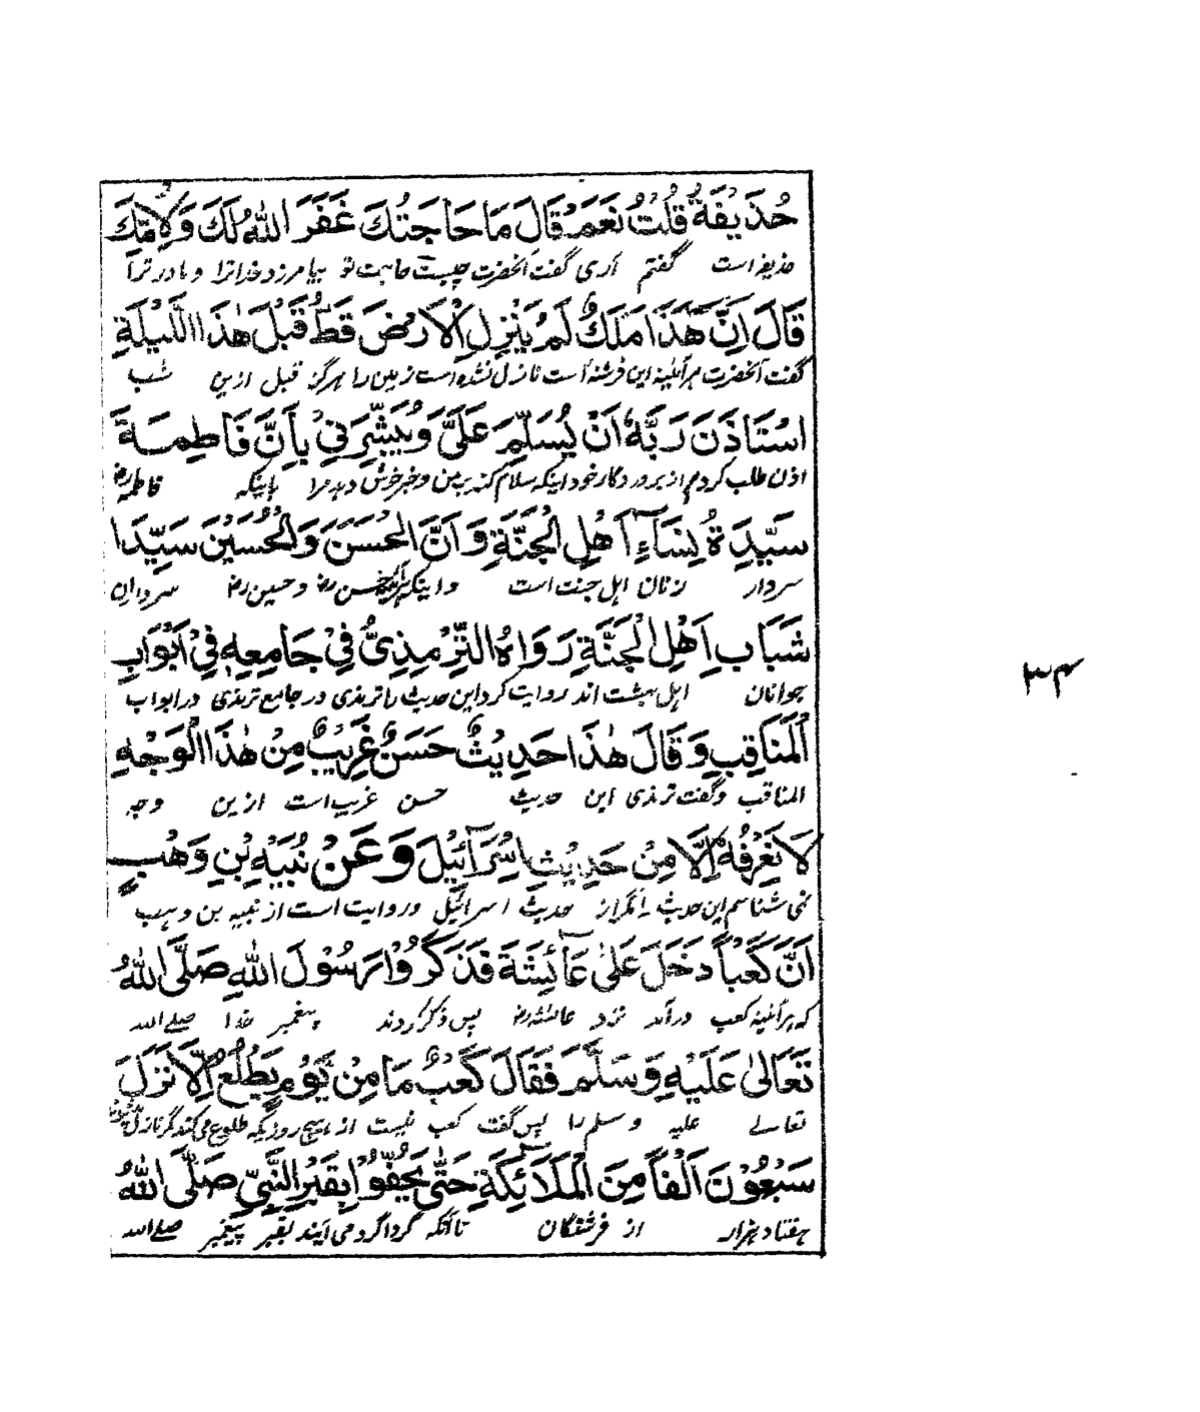 حُذَيْفَةُ قُلْتُ نَعَمْ قَالَ مَا حَاجَتُكَ غَفَرَ اللّٰهُ لَكَ وَلِأُمِّكَ
حذیفه است گفتم آری گفت آنحضرت چیست حاجت تو بیامرزد خدا ترا و مادر ترا
قَالَ اِنَّ هَذَا مَلَكٌ لَمْ يَنْزِلِ الْاَرْضَ قَطُّ قَبْلَ هٰذَا اللَّيْلَةِ
گفت آنحضرت هرآئینه این فرشته است نازل نشده است زمین را هرگز قبل ازین شب
اسْتَاذَنَ رَبَّهٗ اَنْ يُسَلِّمَ عَلَيَّ وَيُبَشِّرَنِيْ بِاَنَّ فَاطِمَةَ
اذن طلب کردم از پروردگار خود اینکه سلام کند بر من و خبر خوش دهد مرا باینکه فاطمه رض
سَيِّدَةُ نِسَآءِ اَهْلِ الْجَنَّةِ وَ اَنَّ الْحَسَنَ وَالْحُسَيْنَ سَيِّدَا
سردار زنان اهل جنت است و اینکه حسن رض و حسین رض سرداران
شَبَابِ اَهْلِ الْجَنَّةِ رَوَاهُ التِّرْمِذِيُّ فِيْ جَامِعِهٖ فِيْ اَبْوَابِ
جوانان اهل بهشت اند روایت کرد این حدیث را ترمذی در جامع ترمذی در ابواب
الْمَنَاقِبِ وَقَالَ هٰذَا حَدِيْثٌ حَسَنٌ غَرِيْبٌ مِنْ هٰذَا الْوَجْهِ
المناقب و گفت ترمذی این حدیث حسن غریب است ازین وجه
لَا نَعْرِفُهٗ اِلَّا مِنْ حَدِيْثِ اِسْرَآئِيْلَ وَعَنْ نُبَيْهِ بْنِ وَهْبٍ
نمی شناسم این حدیث را مگر از حدیث اسرائیل و روایت است از نبیه بن وهب
اَنَّ كَعْباً دَخَلَ عَلٰى عَآئِشَةَ فَذَكَرُوْا رَسُوْلَ اللّٰهِ صَلَّى اللّٰهُ
که هرآئینه کعب درآمد نزد عائشه رض پس ذکر کردند پیغمبر خدا صلے الله
تَعَالٰى عَلَيْهِ وَسَلَّمَ فَقَالَ كَعْبٌ مَا مِنْ يَوْمٍ يَطْلُعُ اِلَّا نَزَلَ
تعالے علیه و سلم را پس گفت کعب نیست از هیچ روزیکه طلوع می کند مگر نازل
سَبْعُوْنَ اَلْفاً مِنَ الْمَلَآئِكَةِ حَتّٰى يَحُفُّوْا بِقَبْرِ النَّبِيِّ صَلَّى اللّٰهُ
هفتاد هزار از فرشتگان تا آنکه گرداگرد می آیند بقبر پیغمبر صلے الله
۳۴